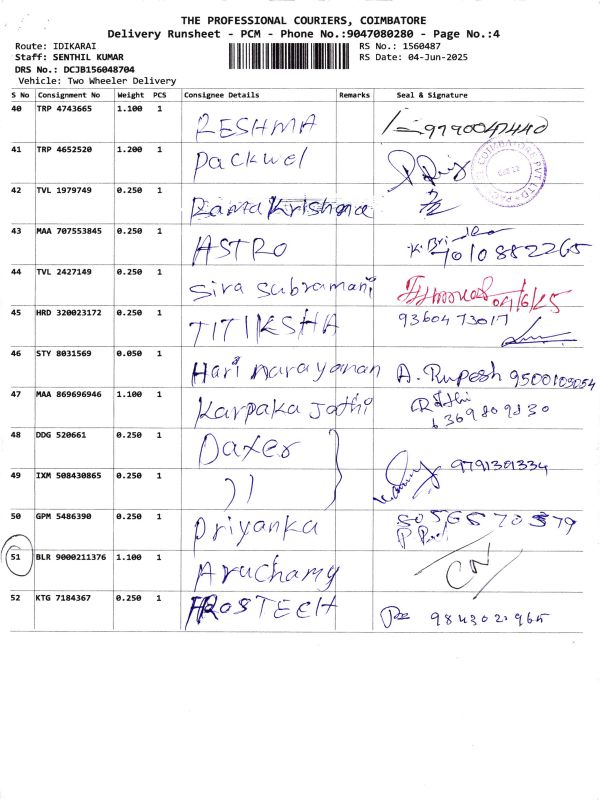 THE PROFESSIONAL COURIERS, COIMBATORE
Delivery Runsheet - PCM - Phone No.:9047080280 - Page No.:4
Route: IDIKARAI RS No.: 1560487
Staff: SENTHIL KUMAR RS Date: 04-Jun-2025
DRS No.: DCJB156048704
Vehicle: Two Wheeler Delivery
S No Consignment No Weight PCS Consignee Details Remarks Seal & Signature
40 TRP 4743665 1.100 1 RESHMA
41 TRP 4652520 1.200 1 Packwel
42 TVL 1979749 0.250 1 Rama Krishna
43 MAA 707553845 0.250 1 ASTRO 7010882265
44 TVL 2427149 0.250 1 Siva Subramani 04/6/25
45 HRD 320023172 0.250 1 TITIKSHA 9360473017
46 STY 8031569 0.050 1 Hari narayanan A. Rupesh 9500109054
47 MAA 869696946 1.100 1 Karpaka Jothi 6369809830
48 DDG 520661 0.250 1 Daxer
49 IXM 508430865 0.250 1 )) 9791301334
50 GPM 5486390 0.250 1 Priyanka
51 BLR 9000211376 1.100 1 Aruchamy
52 KTG 7184367 0.250 1 FROSTECH 9843021965